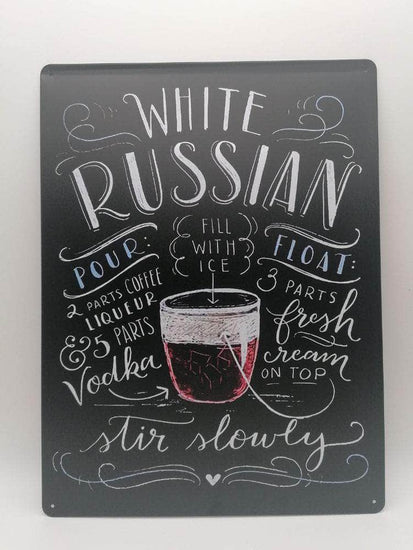 WHITE
RUSSIAN
POUR:
2 PARTS COFFEE
LIQUEUR
& 5 PARTS
Vodka
FILL
WITH
ICE
FLOAT:
3 PARTS
fresh
cream
ON TOP
stir slowly